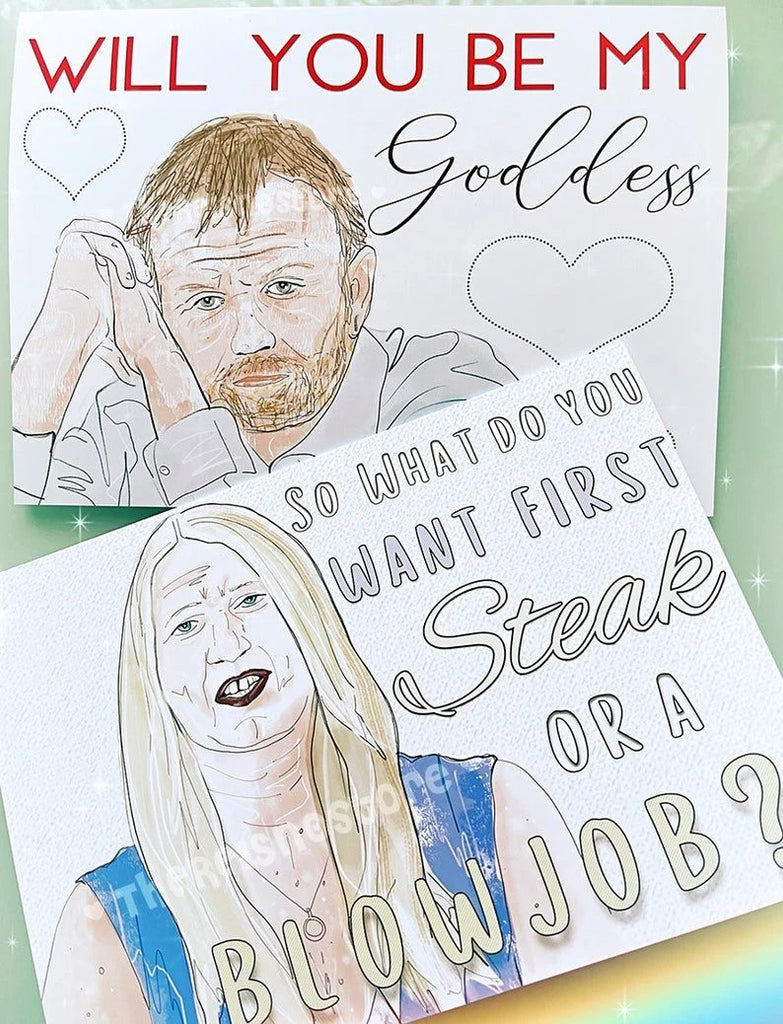 WILL YOU BE MY
Goddess
SO WHAT DO YOU
WANT FIRST
Steak
OR A
BLOWJOB?